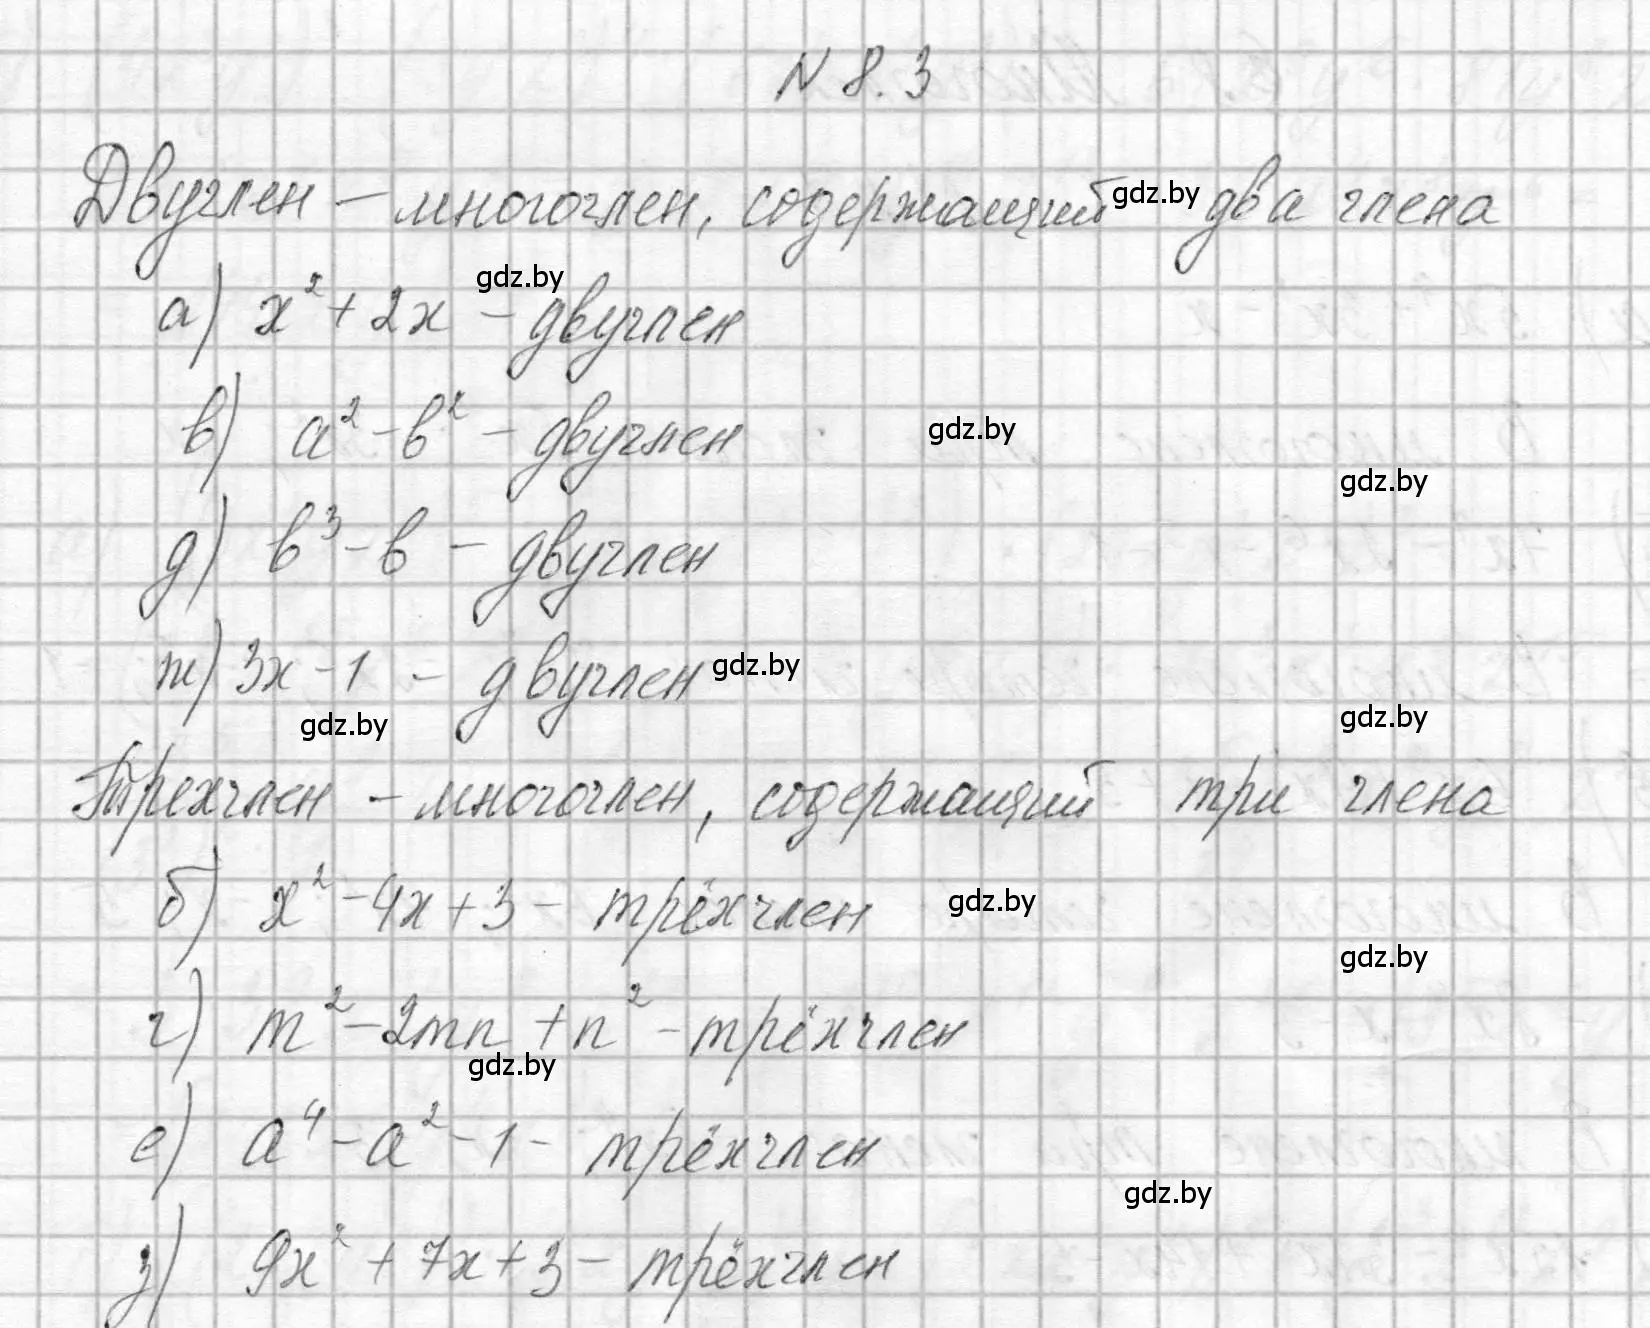 N 8.3
Двучлен – многочлен, содержащий gdz.by два члена
gdz.by
а) x² + 2x – двучлен
в) a² – b² – двучлен gdz.by
gdz.by
д) b³ – b – двучлен
ж) 3x – 1 – двучлен gdz.by
gdz.by gdz.by
Трехчлен – многочлен, содержащий три члена
б) x² – 4x + 3 – трёхчлен gdz.by
gdz.by
г) m² – 2mn + n² – трёхчлен
gdz.by
е) a⁴ – a² – 1 – трёхчлен
gdz.by
з) 9x² + 7x + 3 – трёхчлен